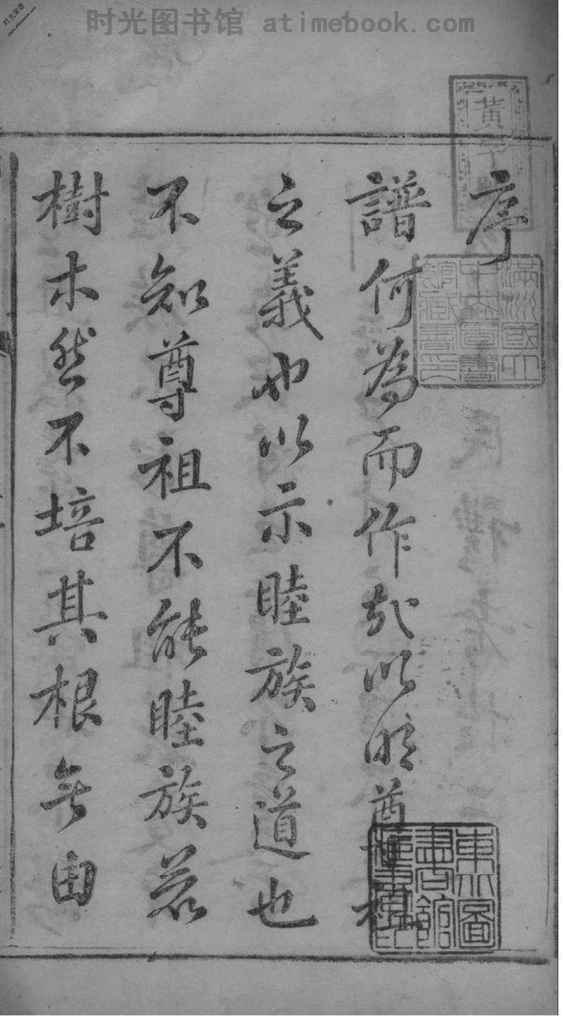 时光图书馆 atimebook.com
序
譜何為而作哉以明尊祖
之義也以示睦族之道也
不知尊祖不能睦族若
樹木然不培其根無由